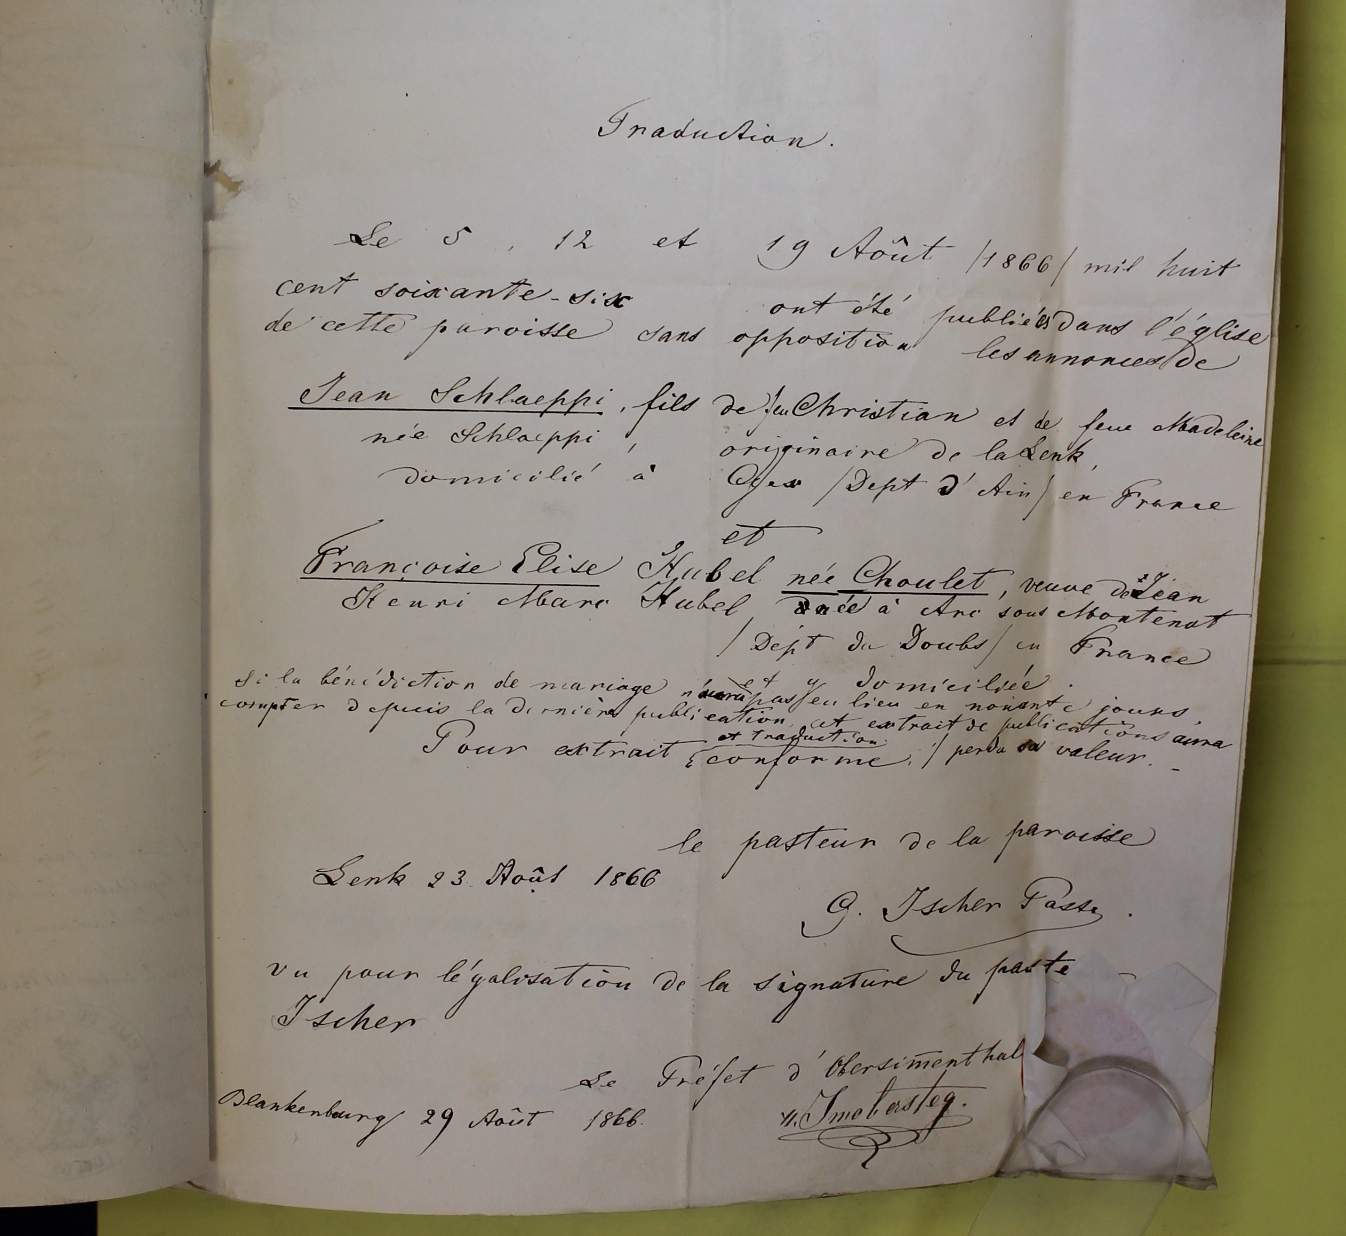 Traduction.
Le 5, 12 et 19 Août /1866/ mil huit
cent soixante-six ont été publiées dans l'église
de cette paroisse sans opposition les annonces de
Jean Schlaeppi, fils de feu Christian et de feue Madeleine
née Schlaeppi, originaire de la Lenk,
domicilié à Gex /Dept d'Ain/ en France
et
Françoise Elise Hubel née Choulet, veuve de Jean
Henri Marc Hubel née à Arc sous Montenot
/Dépt du Doubs/ en France
et y domiciliée.
Si la bénédiction de mariage n'aura pas eu lieu en nonante jours,
compter depuis la dernière publication, cet extrait de publications aura
perdu sa valeur. -
Pour extrait et traduction
conforme,
le pasteur de la paroisse
Lenk 23. Août 1866
G. Ischer Past.
Vu pour légalisation de la signature du paste
Ischer
Le Préfet d'Obersimenthal
Blankenbourg 29 Août 1866.
Imobersteg.